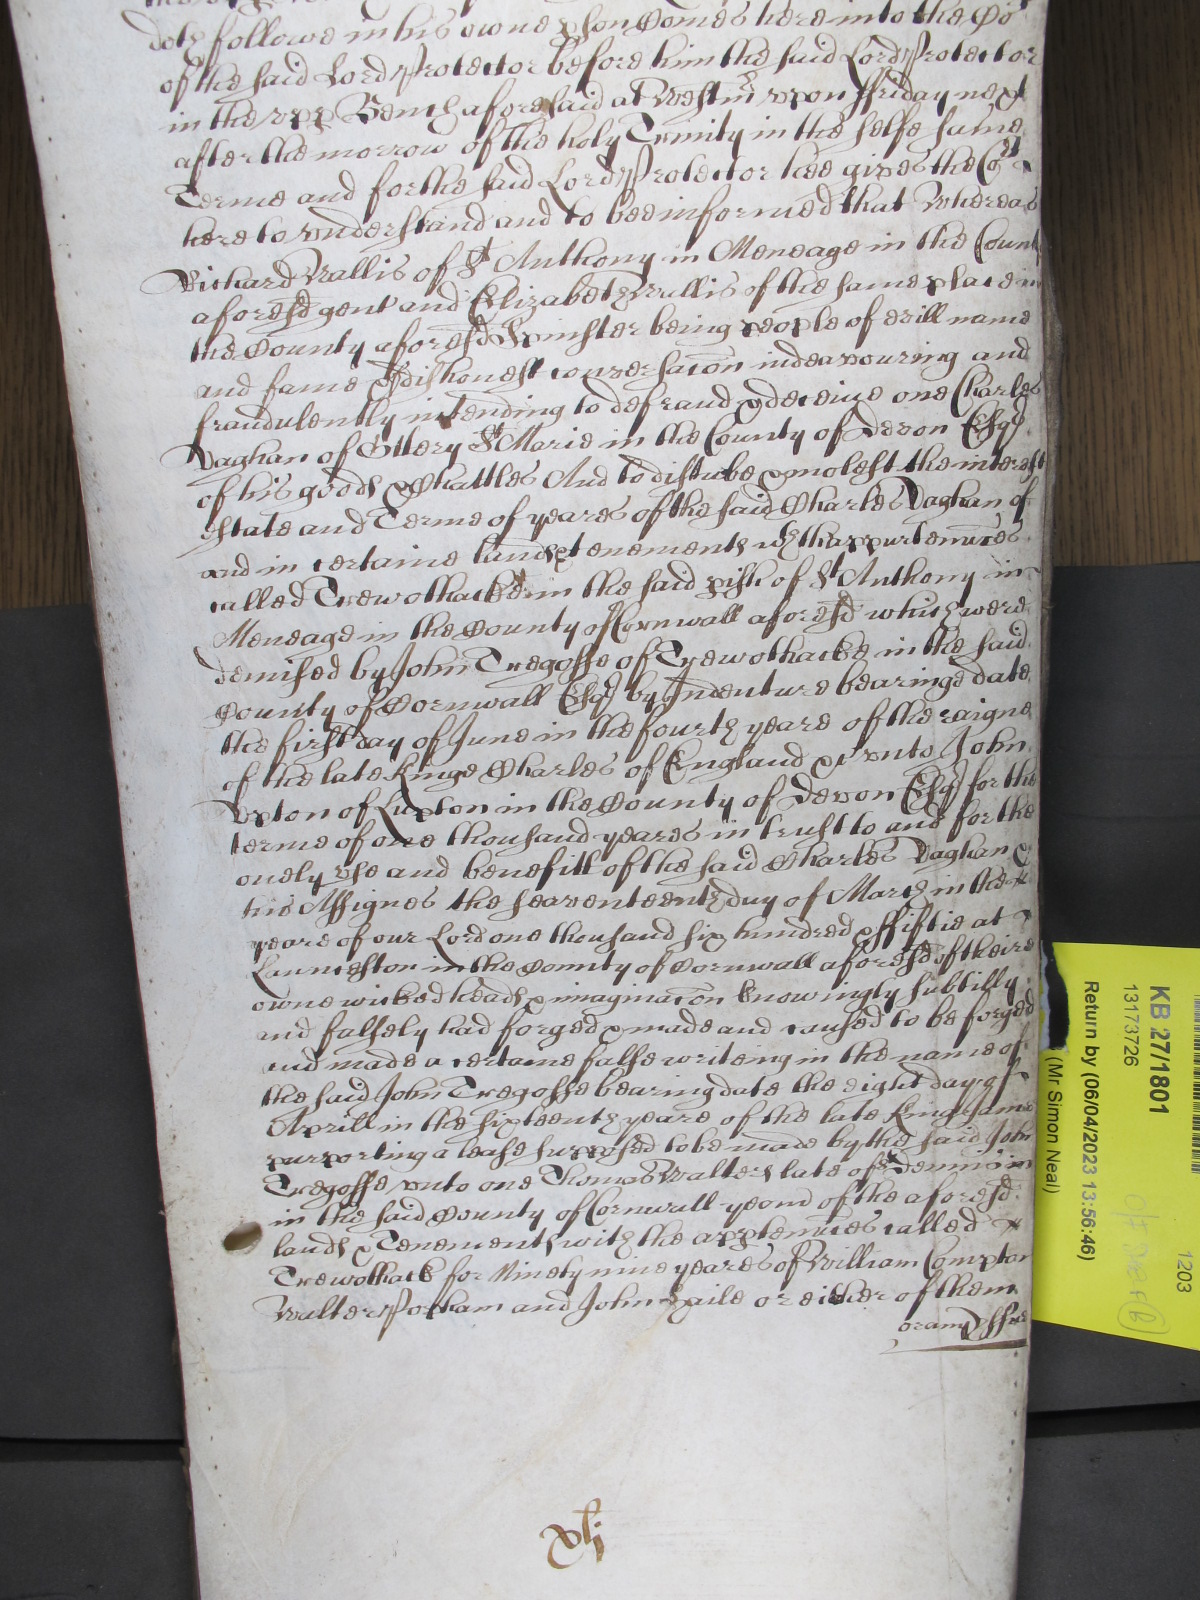 doth followe in his owne pson Comes here into the Co
of the said Lord Protector before him the said Lord Protector
in the vpp Bench aforesaid at Westmr vpon ffriday next
after the morrow of the holy Trinity in the selfe same
Terme and for the said Lord Protector hee gives the Cort
here to vnderstand and to bee informed that Whereas
Richard Vallis of St Anthony in Meneage in the County
aforesd gent and Elizabeth Vallis of the same place in
the County aforesd Spinster being people of evill name
and fame & dishonest conversacon indeavouring and
fraudulently intending to defraud & deceive one Charles
Vaghan of Ottery St Marie in the County of Devon Esqr
of his goods & Chattles And to distube & molest the interest
state and Terme of yeares of the said Charles Vaghan of
and in certaine lands & tenements wth thappurtennces
called Trewothacke in the said pish of St Anthony in
Meneage in the County of Cornwall aforesd which were
demised by John Tregosse of Trewothacke in the said
County of Cornwall Esqr by Indenture bearinge date
the first day of June in the fourth yeare of the raigne
of the late Kinge Charles of England &c vnto John
Vpton of Lupton in the County of Devon Esqr for the
terme of one thousand yeares in trust to and for the
onely vse and benefitt of the said Charles Vaghan &
his Assignes the seaventeenth day of March in the
yeare of our Lord one thousand six hundred & ffiftie at
Launceston in the County of Cornwall aforesd of theire
owne wicked heads & imaginacon knowingly subtilly
and falsely had forged & made and caused to be forged
and made a certaine false writeing in the name of
the said John Tregosse bearing date the eight day of
Aprill in the sixteenth yeare of the late King James
purporting a lease supposed to be made by the said John
Tregosse vnto one Thomas Walters late of St Dennis in
in the said County of Cornwall yeom of the aforesd
lands & Tenements with the apptennces called
Trewothack for Ninety nine yeares of William Compton
Walter Porham and John Haile or either of them
oramJssue
xli
KB 27/1801
13173726
Return by (06/04/2023 13:56:46)
(Mr Simon Neal)
1203